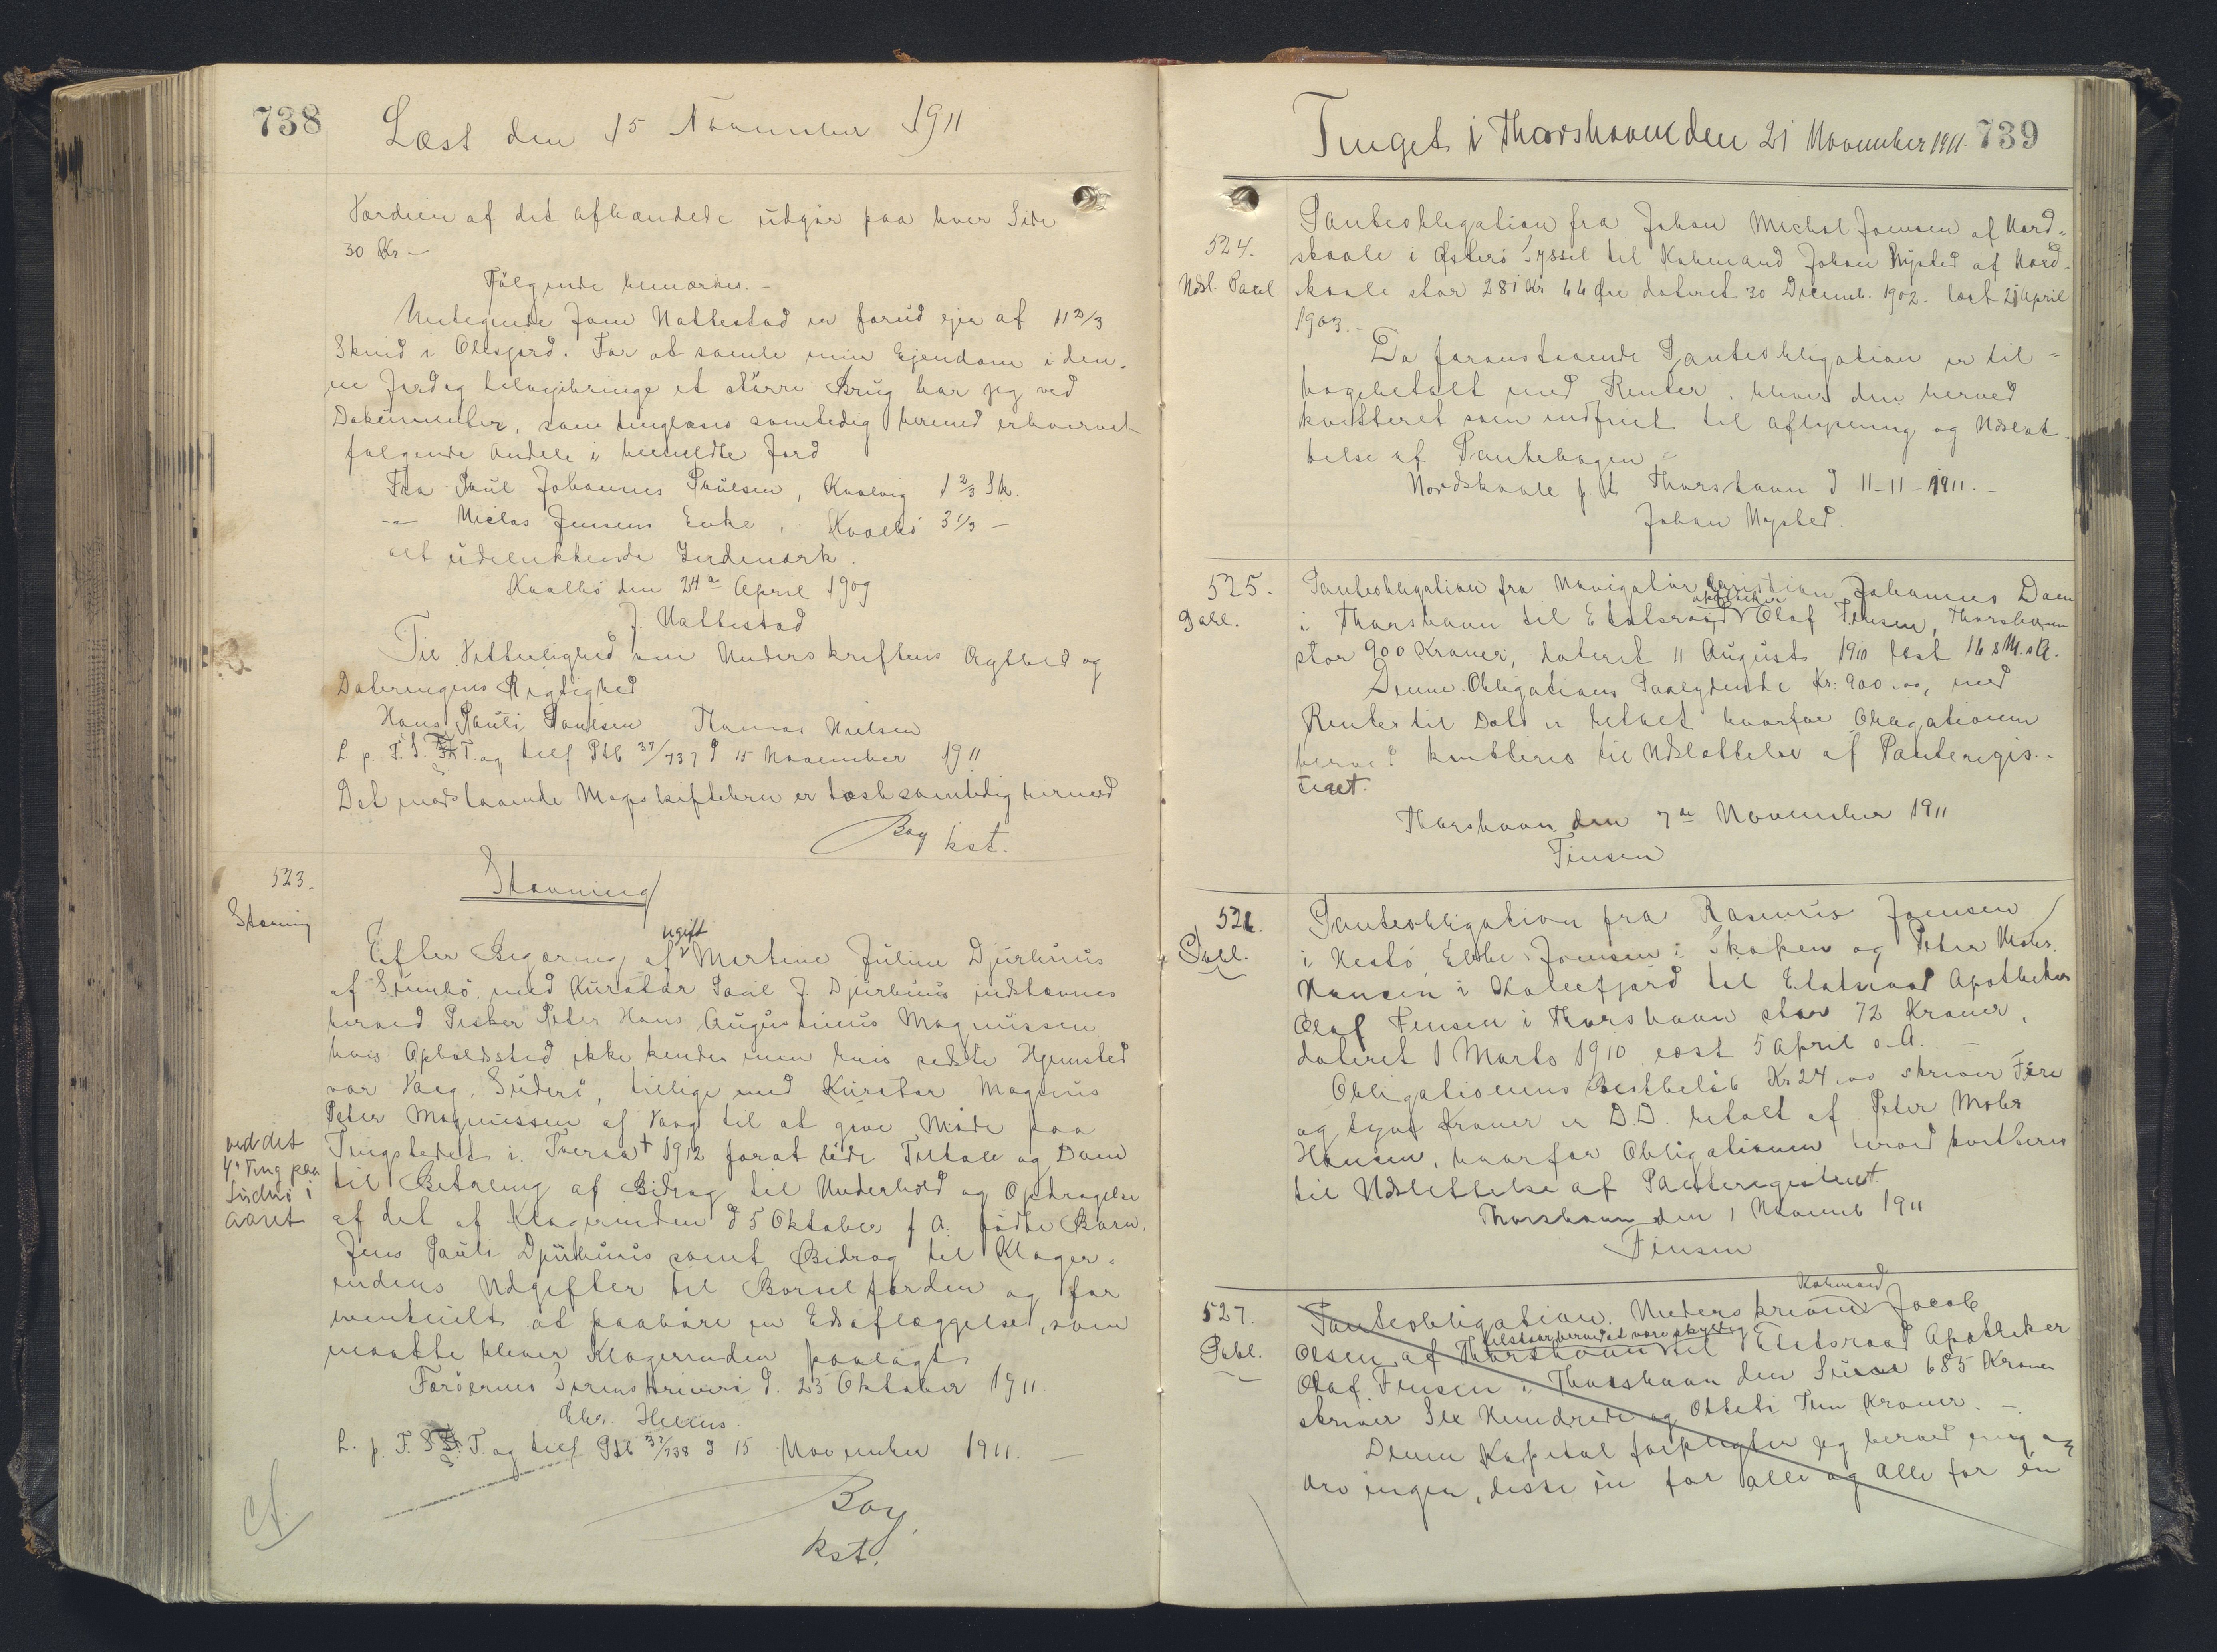 738
Læst den 15 November 1911
Værdien af det afhændede udgør paa hver Side
30 Kr –
Følgende bemærkes. –
Undtegnede Joen Nattestad er forud ejer af 11 2/3
Skind i Ollesjord. For at samle min Ejendom i den-
ne Jord og tilvejebringe et større Brug har jeg ved
Dokumenter, som tinglæses samtidig hermed erhvervet
følgende Andele i bemeldte Jord
Fra Poul Johannes Poulsen, Kvalvig 1 2/3 Sk.
–„– Niclas Jensens Enke, Kvalbø 3 1/3 –
alt udelukkende Indmark.
Kvalbø den 24de April 1909
J. Nattestad
Til Vitterlighed om Underskriftens Ægthed og
Dateringens Rigtighed
Hans Pauli Poulsen Thomas Nielsen
L. p. F. S. T. og tilf Ptb 37/737 d 15 November 1911
Det modstaaende Mageskiftebrev er læst samtidig hermed
Bay
kst.
523.
Stævning
Stævning
Efter Begæring af ugift Martine Juline Djurhuus
af Sumbø med Kurator Poul J. Djurhuus indstævnes
herved Fisker Peter Hans Augustinus Magnussen
hvis Opholdssted ikke kendes men hvis sidste Hjemsted
var Vaag, Suderø, tillige med Kurator Magnus
Peter Magnussen af Vaag til at give Møde paa
Tingstedet i Tveraa + 1912 for at lide Tiltale og Dom
ved det
4' Ting paa
Suderø i
Aaret
til Betaling af Bidrag til Underhold og Opdragelse
af det af Klagerinden d 5 Oktober f A. fødte Barn.
Jens Pauli Djurhuus samt Bidrag til Klager-
indens Udgifter til Barselfærden og for
eventuelt at paahøre en Edsaflæggelse, som
maatte bliver Klagerinden paalagt
Færøernes Sorenskriveri d. 25 Oktober 1911.
L. p. F. S. T. og tilf Ptb 37/738 d 15 November 1911. –
Bay
kst.
cf.
Tinget i Thorshavn den 21 November 1911.
739
524.
Udsl. Pael
Panteobligation fra Johan Michal Joensen af Nord-
skaale i Østerø Syssel til Købmand Johan Nysted af Nord-
skaale stor 281 Kr 44 Øre dateret 30 Decemb. 1902. læst 21 April
1903. –
Da foranstaaende Panteobligation er til-
bagebetalt med Renter, bliver den herved
kvitteret som indfriet til Aflysning og Udslet-
telse af Pantebogen
Nordskaale p. t. Thorshavn d 11–11–1911. –
Johan Nysted.
525.
Pabl.
Panteobligation fra Navigatør Christian Johannes Dam
i Thorshavn til Etatsraad Apotheker Olaf Finsen, Thorshavn
stor 900 Kroner, dateret 11 August 1910 læst 16 s M. s A.
Denne Obligations Paalydende Kr. 900.00, med
Renter til Dato er betalt hvorfor Obligationen
herved kvitteres til Udslettelse af Panteregis-
teret.
Thorshavn den 7de November 1911
Finsen
526.
Pabl.
Panteobligation fra Rasmus Joensen
i Hestø, Joensen i Skopen og Peter Mohr
Hansen i Kollefjord til Etatsraad Apotheker
Olaf Finsen i Thorshavn stor 72 Kroner,
dateret 1 Marts 1910 læst 5 April s. A. –
Obligationens Restbeløb Kr 24.00 skriver Fire
og tyve Kroner er D.D. betalt af Peter Mohr
Hansen, hvorfor Obligationen herved kvitteres
til Udslettelse af Panteregisteret.
Thorshavn den 1 Novemb 1911
Finsen
527.
Pabl.
Panteobligation. Underskreven Købmand Jacob
Olsen af Thorshavn tilstaar herved at være skyldig til Etatsraad Apotheker
Olaf Finsen i Thorshavn den Summa 685 Kroner
skriver Sex Hundrede og Otteti Fem Kroner. –
Denne Kapital forpligter jeg herved mig og
Arvinger, disse én for alle og Alle for én